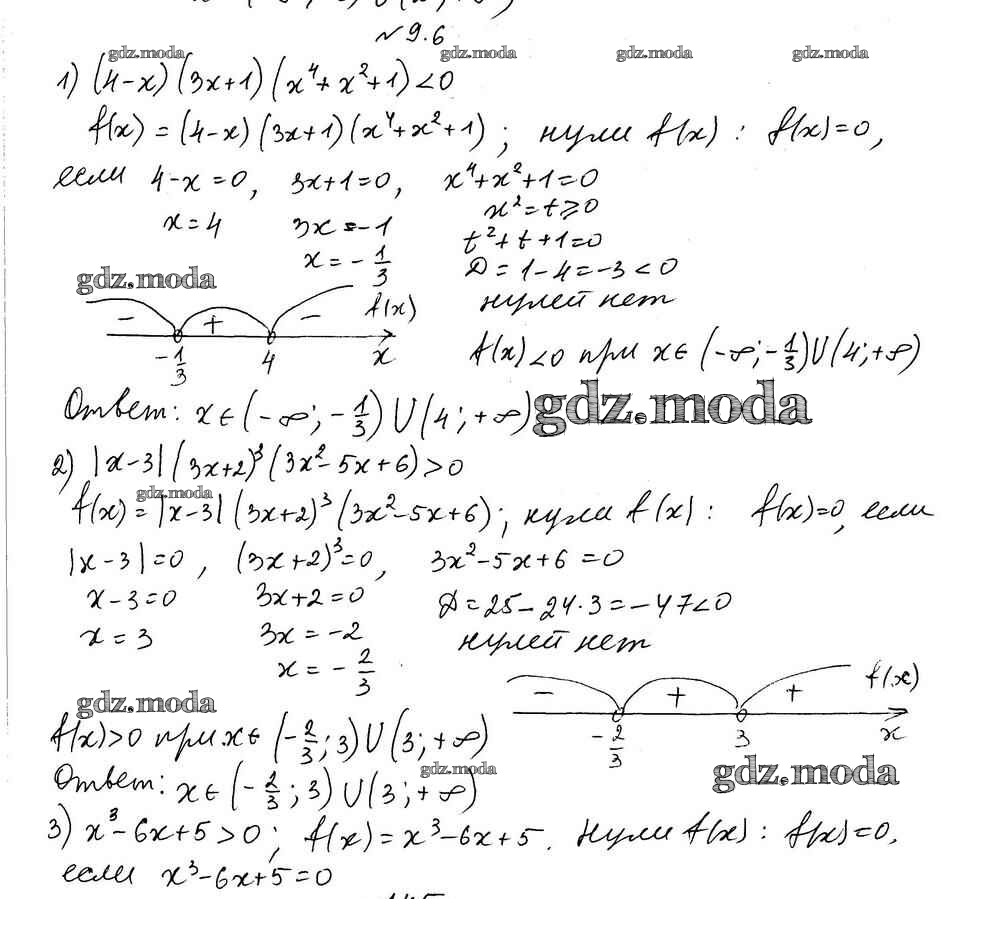 № 9.6
gdz.moda gdz.moda gdz.moda gdz.moda
1) (4-x)(3x+1)(x⁴+x²+1)<0
f(x) = (4-x)(3x+1)(x⁴+x²+1); нули f(x): f(x)=0,
если 4-x=0, 3x+1=0, x⁴+x²+1=0
x=4 3x=-1 x²=t⩾0
x=-1/3 t²+t+1=0
Д=1-4=-3<0
gdz.moda нулей нет
- + - f(x)
-1/3 4 x
f(x)<0 при x∈(-∞;-1/3)U(4;+∞)
Ответ: x∈(-∞;-1/3)U(4;+∞) gdz.moda
2) |x-3|(3x+2)³(3x²-5x+6)>0
gdz.moda
f(x)=|x-3|(3x+2)³(3x²-5x+6); нули f(x): f(x)=0, если
|x-3|=0, (3x+2)³=0, 3x²-5x+6=0
x-3=0 3x+2=0 Д=25-24·3=-47<0
x=3 3x=-2 нулей нет
x=-2/3
- + + f(x)
-2/3 3 x
gdz.moda
f(x)>0 при x∈(-2/3;3)U(3;+∞)
gdz.moda gdz.moda
Ответ: x∈(-2/3;3)U(3;+∞)
3) x³-6x+5>0; f(x)=x³-6x+5. Нули f(x): f(x)=0,
если x³-6x+5=0